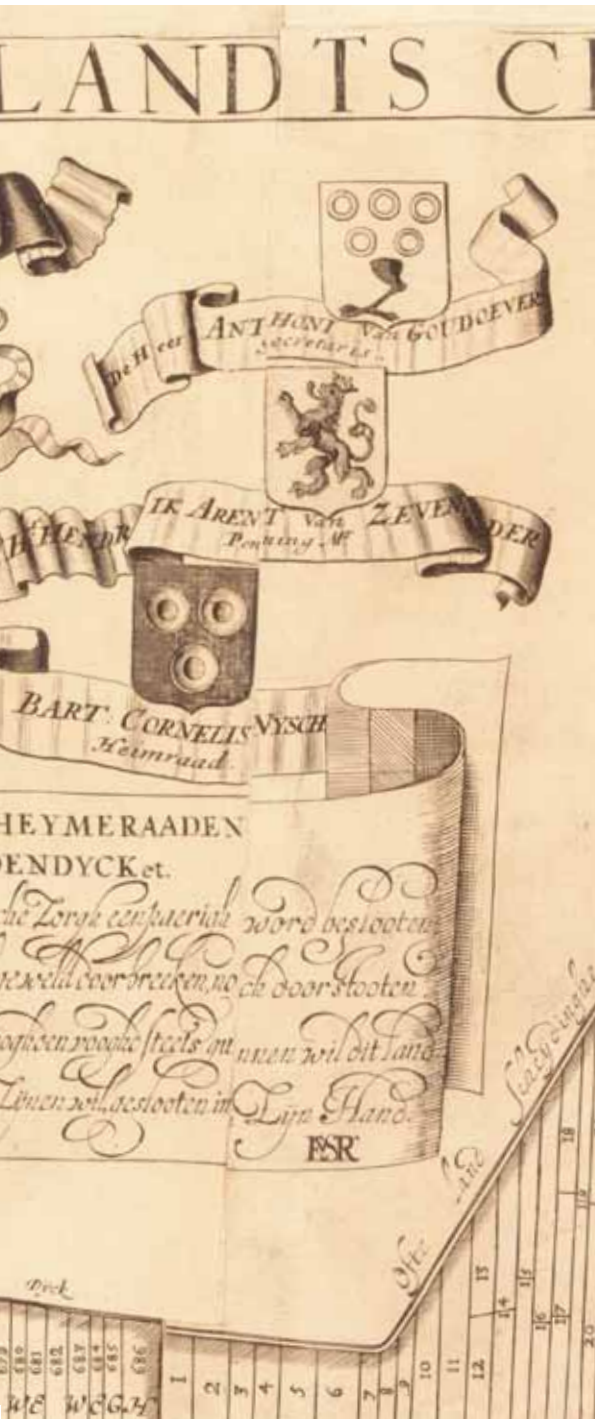 LANDTS C
De Heer ANTHONI van GOUDOEVER
Secretaris.
HENDRIK ARENT van ZEVENDER
Penning Mr
BART. CORNELIS VYSCH
Heimraad.
HEYMERAADEN
ENDYCK et.
che Zorgh eenpaerigh word beslooten
geweld doorbreeken, noch doorstooten
nnen wil dit land
wil geslooten in Zijn Hand.
Dyck
Ofte land scheydinghe
680 681 682 684 685 686
WE WEGH
1 2 3 4 5 6 7 8 9 10 11 12 13 14 15 16 17 18 19 20